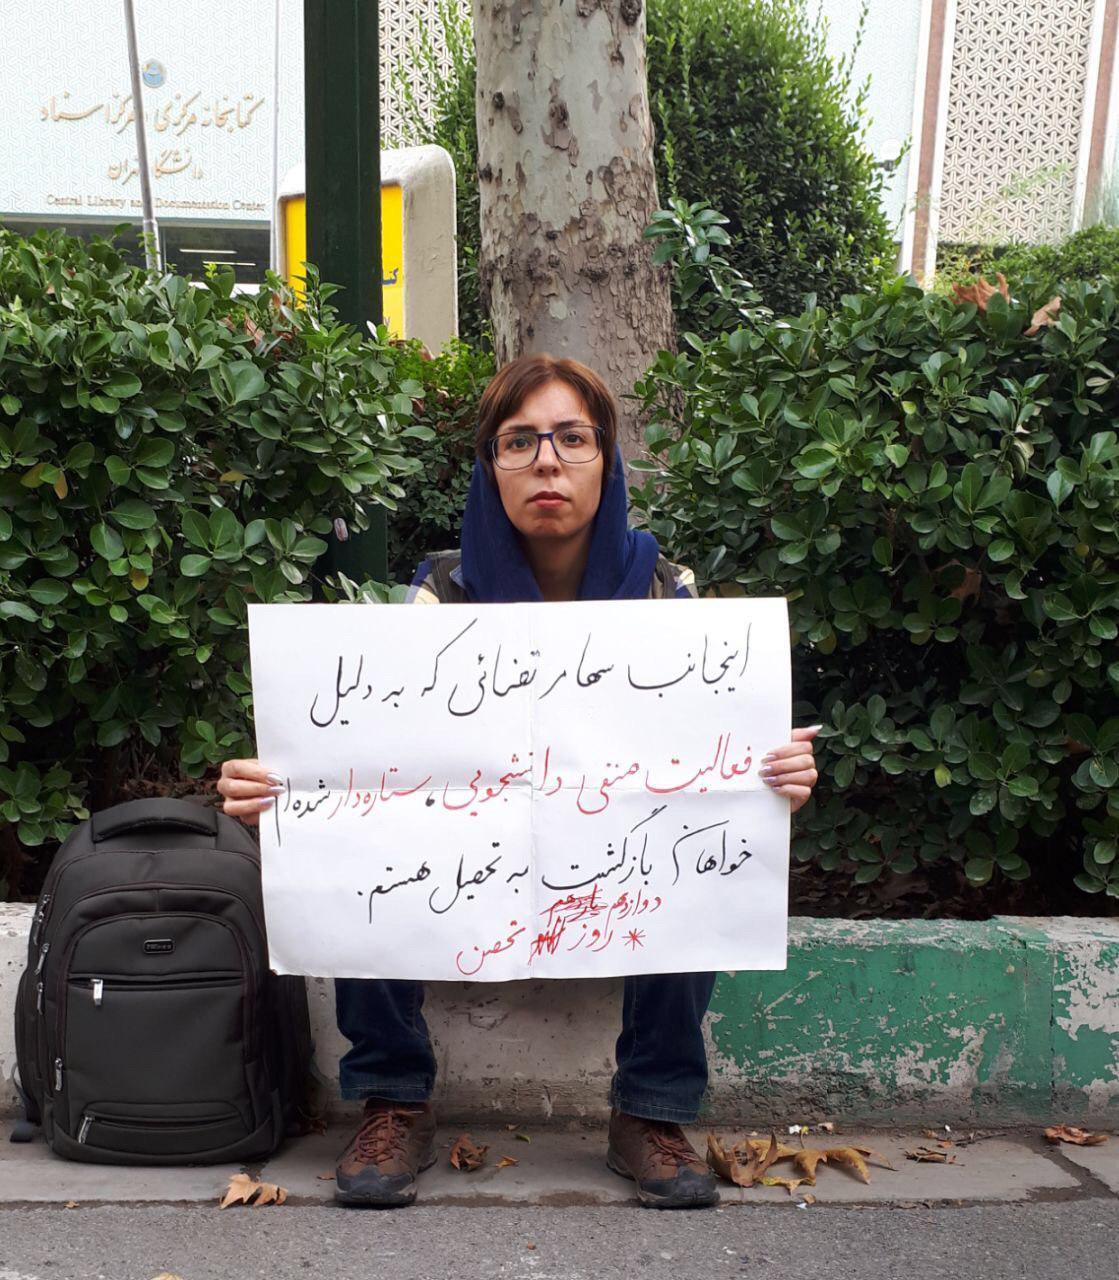 کتابخانه مرکزی و مرکز اسناد
دانشگاه تهران
Central Library and Documentation Center
اینجانب سها مرتضائی که به دلیل
فعالیت صنفی دانشجویی، ستاره‌دار شده‌ام
خواهان بازگشت به تحصیل هستم.
دوازدهم یازدهم
* روز تحصن